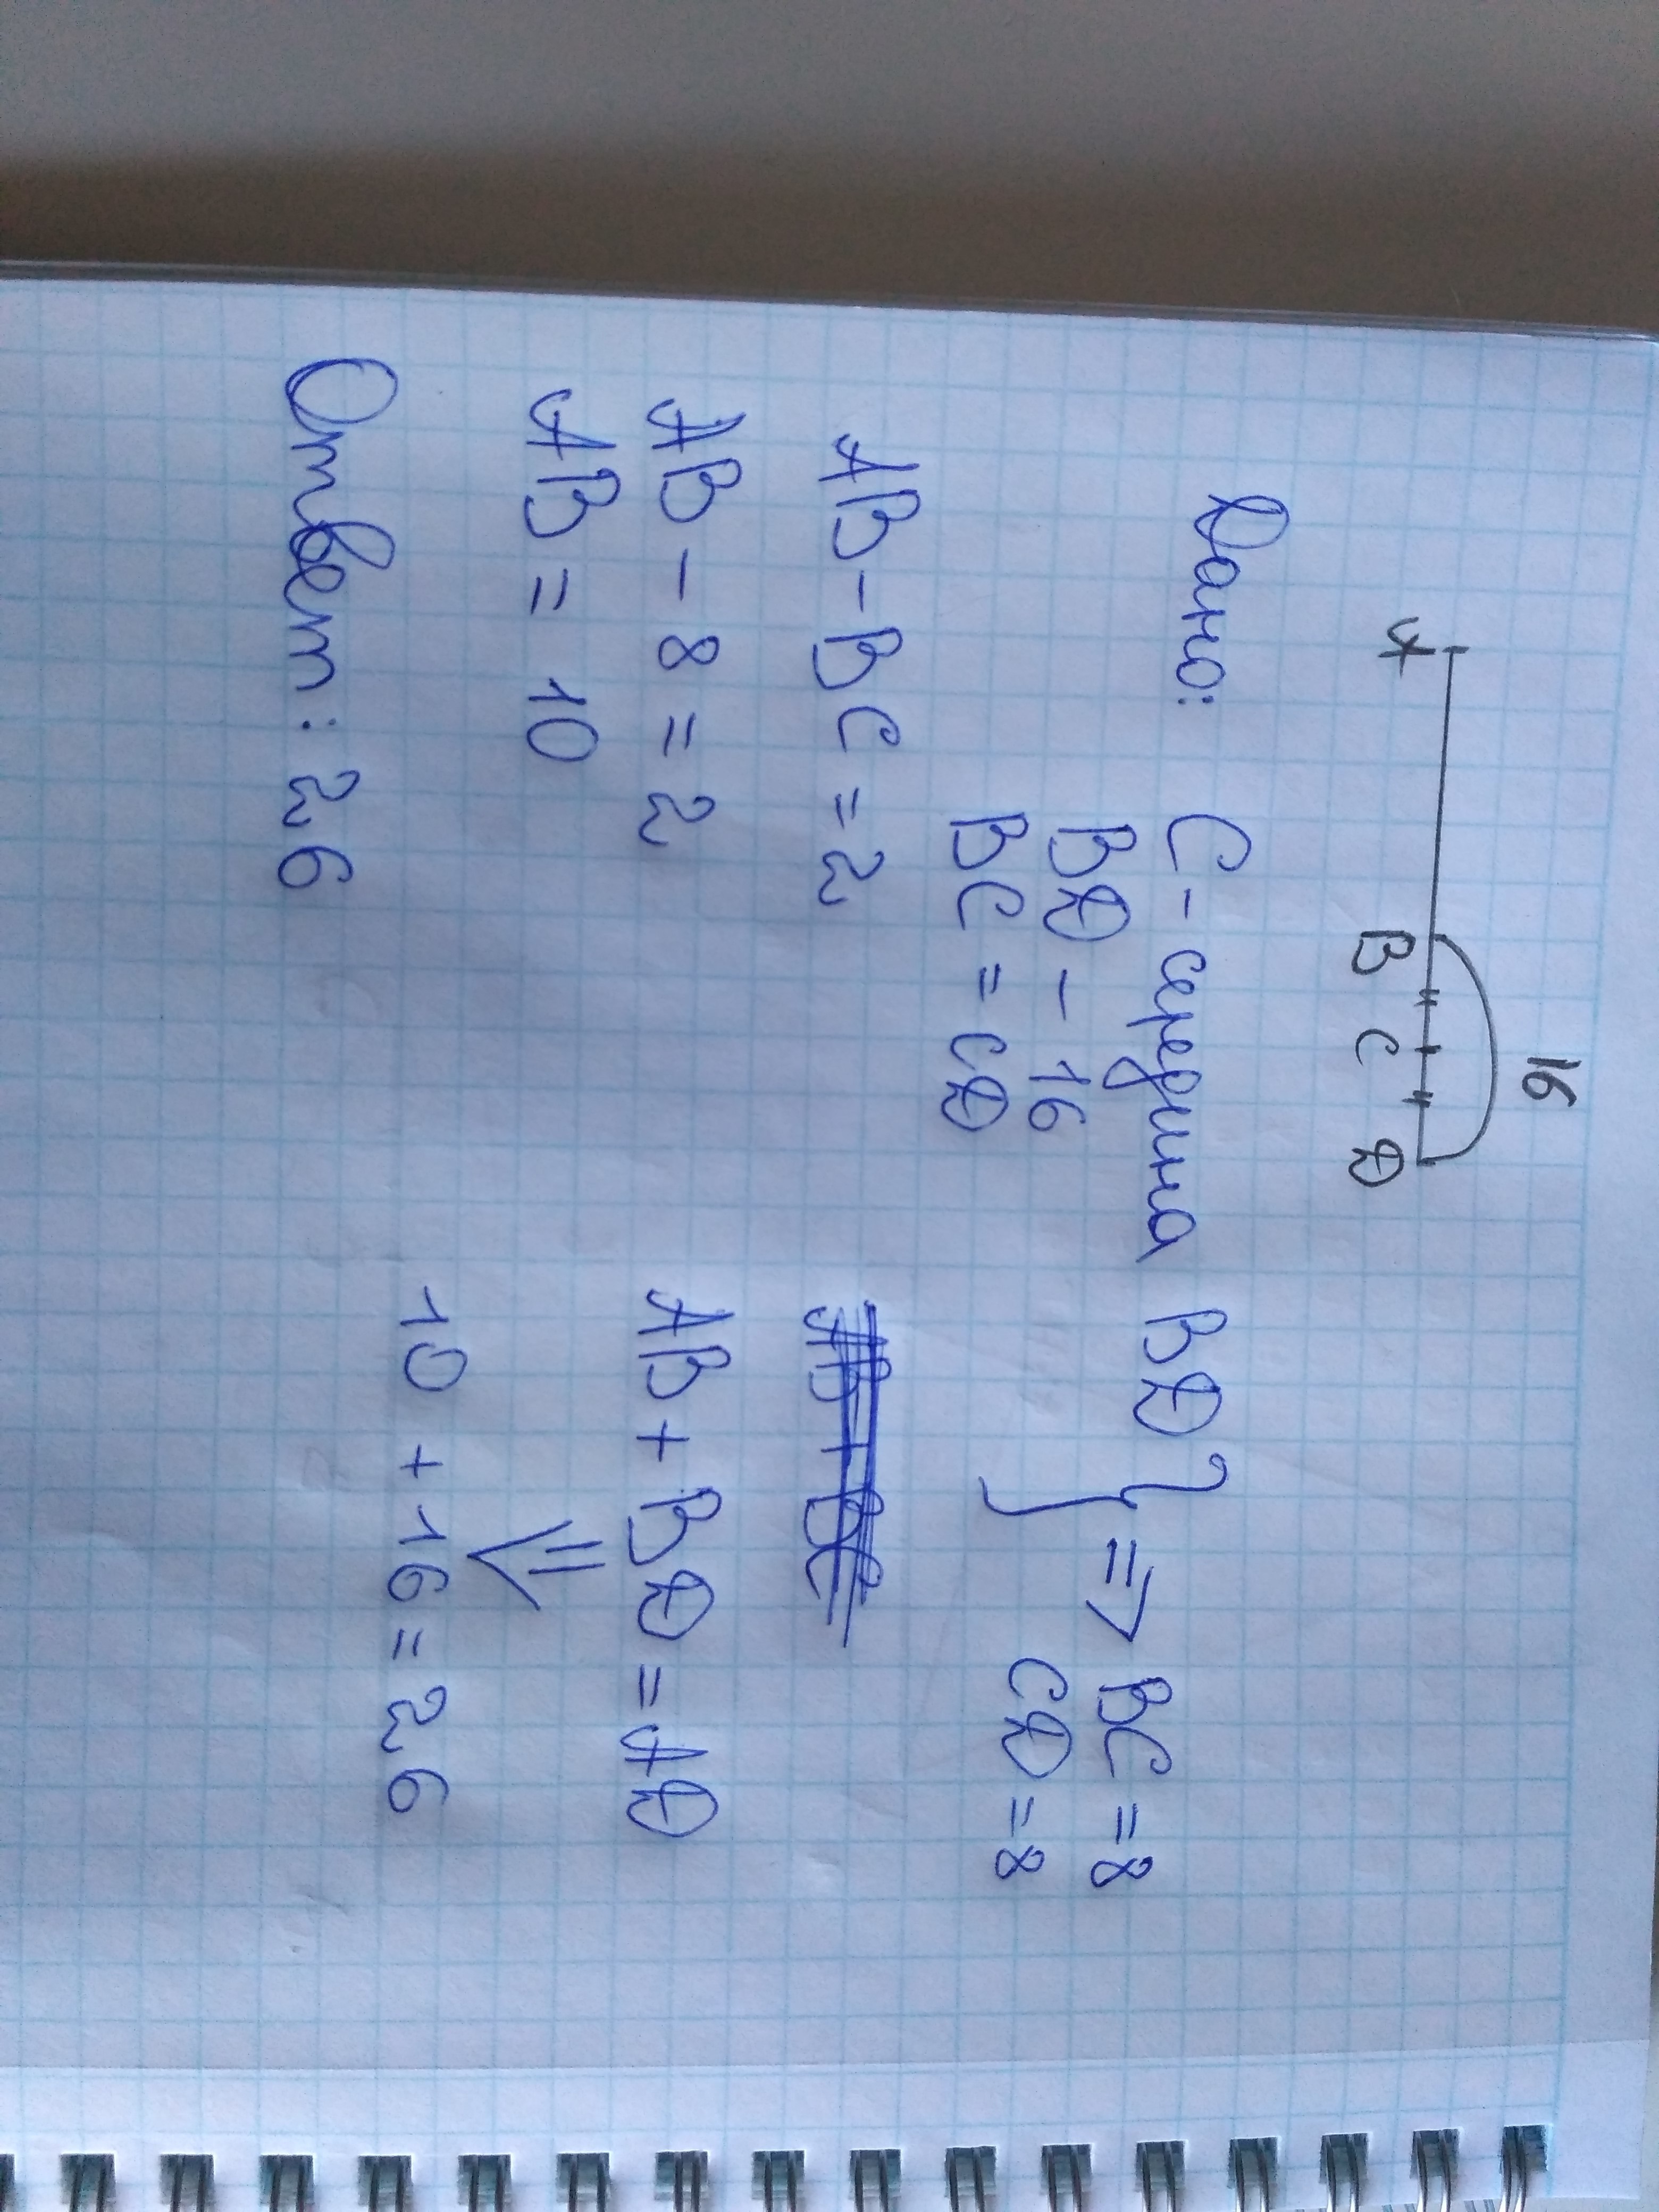 16
A B C D
Дано: C - середина BD } => BC = 8
BD - 16 CD = 8
BC = CD
AB - BC = 2
AB - 8 = 2 AB + BD = AD
AB = 10 =>
10 + 16 = 26
Ответ: 26